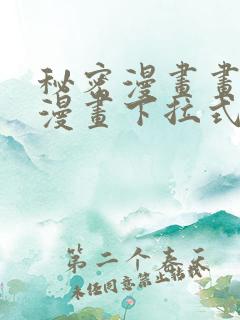 秘密漫畫畫
漫畫下拉式
第二个春天
未经同意禁止转载